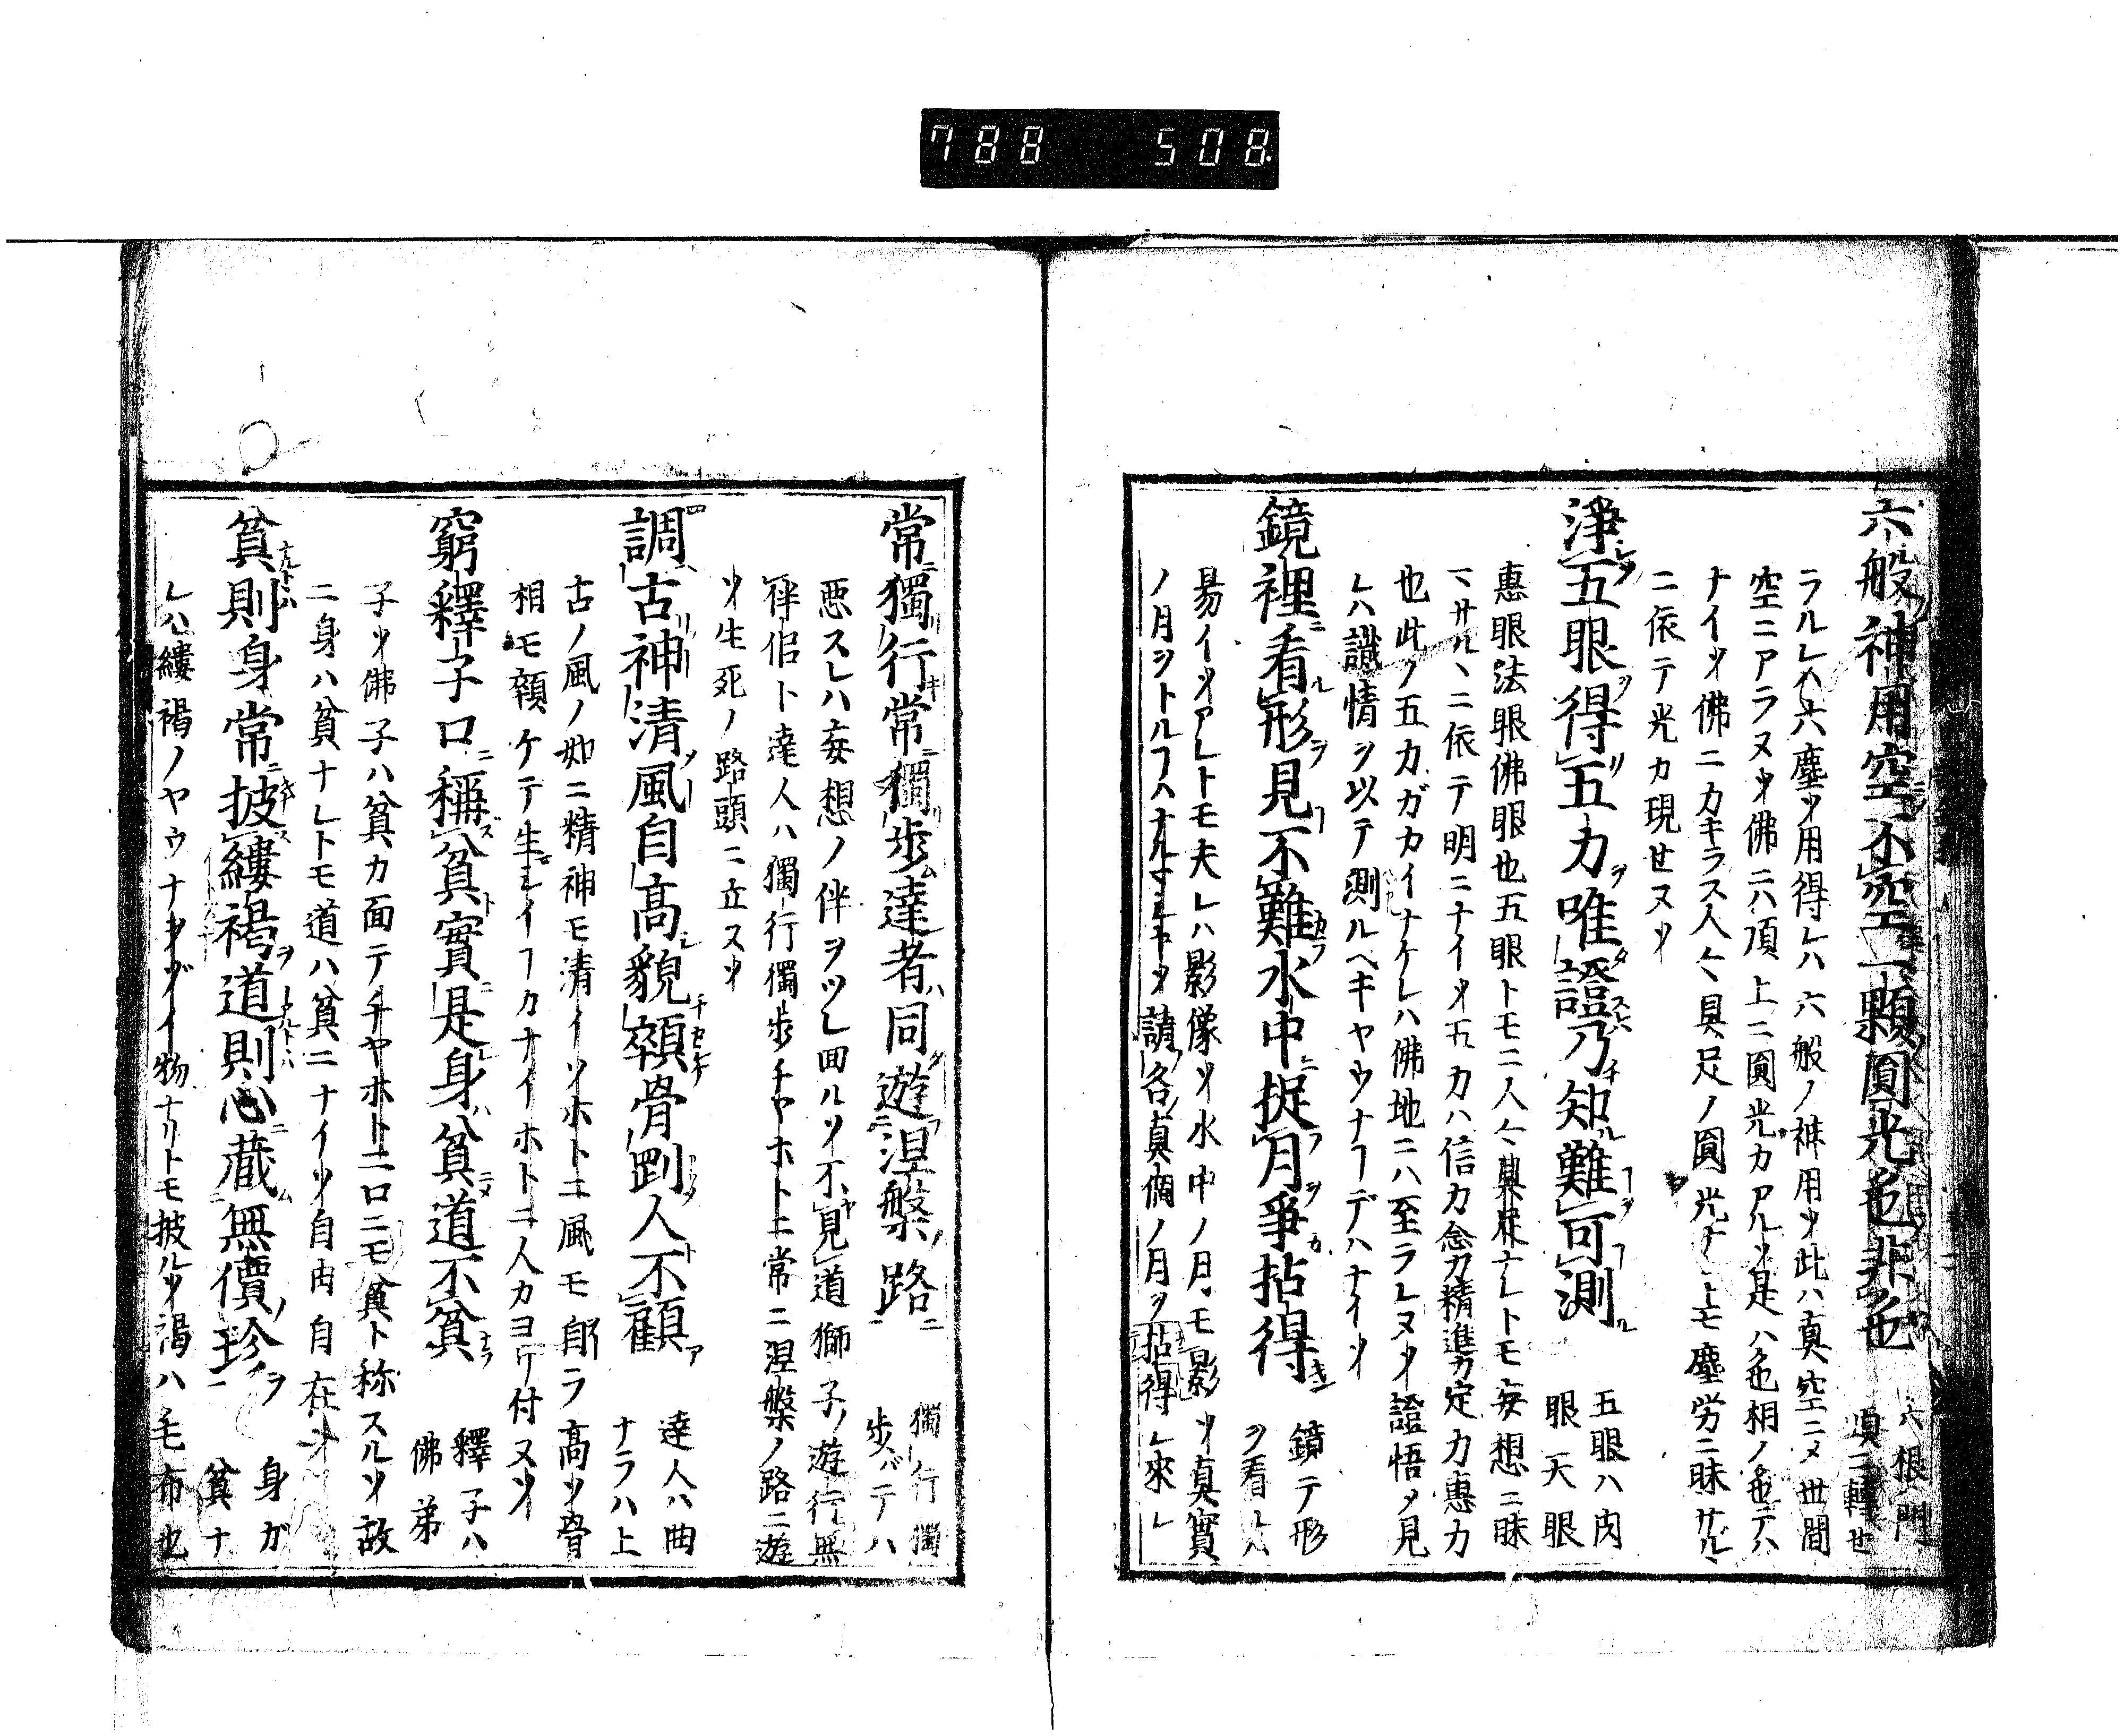 788 508
六般神用空不空一顆圓光色非色 六根門
頭ニ轉セ
ラルレハ六塵ツ用得レハ六般ノ神用ツ此ハ真空ニメ世間
空ニアラヌツ佛ニハ頂上ニ圓光カアルツ是ハ色相ノ色テハ
ナイツ佛ニカキラス人々具足ノ圓光ナレトモ塵労ニ昧サルヽ
ニ依テ光カ現セヌツ
淨五眼得五力唯證乃知難可測 五眼ハ肉
眼天眼
惠眼法眼佛眼也五眼トモニ人々具足ナレトモ妄想ニ昧
マサルヽニ依テ明ニナイツ五力ハ信力念力精進力定力惠力
也此ノ五力ガカイナケレハ佛地ニハ至ラレヌツ證悟メ見
レハ識情ヲ以テ測ルヘキヤウナフデハナイツ
鏡裡看形見不難水中捉月爭拈得 鏡テ形
ヲ看レハ
易イツアレトモ夫レハ影像ツ水中ノ月モ影ツ真實
ノ月ヲトルフハナルマシキツ請各真個ノ月ヲ拈得レ來レ
常獨行常獨歩達者同遊涅槃路 獨行獨
歩バテハ
悪スレハ妄想ノ伴ヲツレ回ルツ不見道獅子ノ遊行無
伴侶ト達人ハ獨行獨歩チヤホトニ常ニ涅槃ノ路ニ遊
ツ生死ノ路頭ニ立スツ
調古神清風自高貌顇骨剛人不顧 達人ハ曲
ナラハ上
古ノ風ノ如ニ精神モ清イツホトニ風モ自ラ高ツ骨
相モ顇ケテ生レイフカナイホトニ人カヨリ付ヌツ
窮釋子口稱貧實是身貧道不貧 釋子ハ
佛弟
子ツ佛子ハ貧カ面テチヤホトニロニモ貧ト称スルツ故
ニ身ハ貧ナレトモ道ハ貧ニナイツ自由自在ツ
貧則身常披縷褐道則心藏無價珍 身ガ
貧ナ
レハ縷褐ノヤウナキヅイ物ナリトモ披ルツ褐ハ毛布也